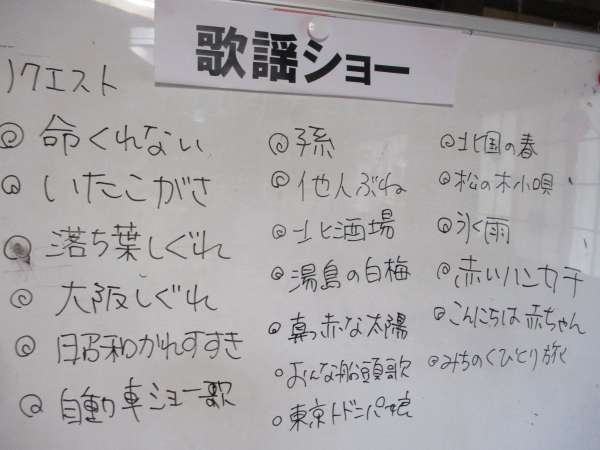 歌謡ショー
リクエスト
◎ 命くれない
◎ いたこがさ
◎ 落ち葉しぐれ
◎ 大阪しぐれ
◎ 昭和かれすすき
◎ 自動車ショー歌
◎ 孫
◎ 他人ぶね
◎ 北酒場
◎ 湯島の白梅
◎ 真っ赤な太陽
○ おんな船頭歌
○ 東京ドドンパ娘
◎ 北国の春
◎ 松の木小唄
◎ 氷雨
◎ 赤いハンカチ
◎ こんにちは赤ちゃん
◎ みちのくひとり旅